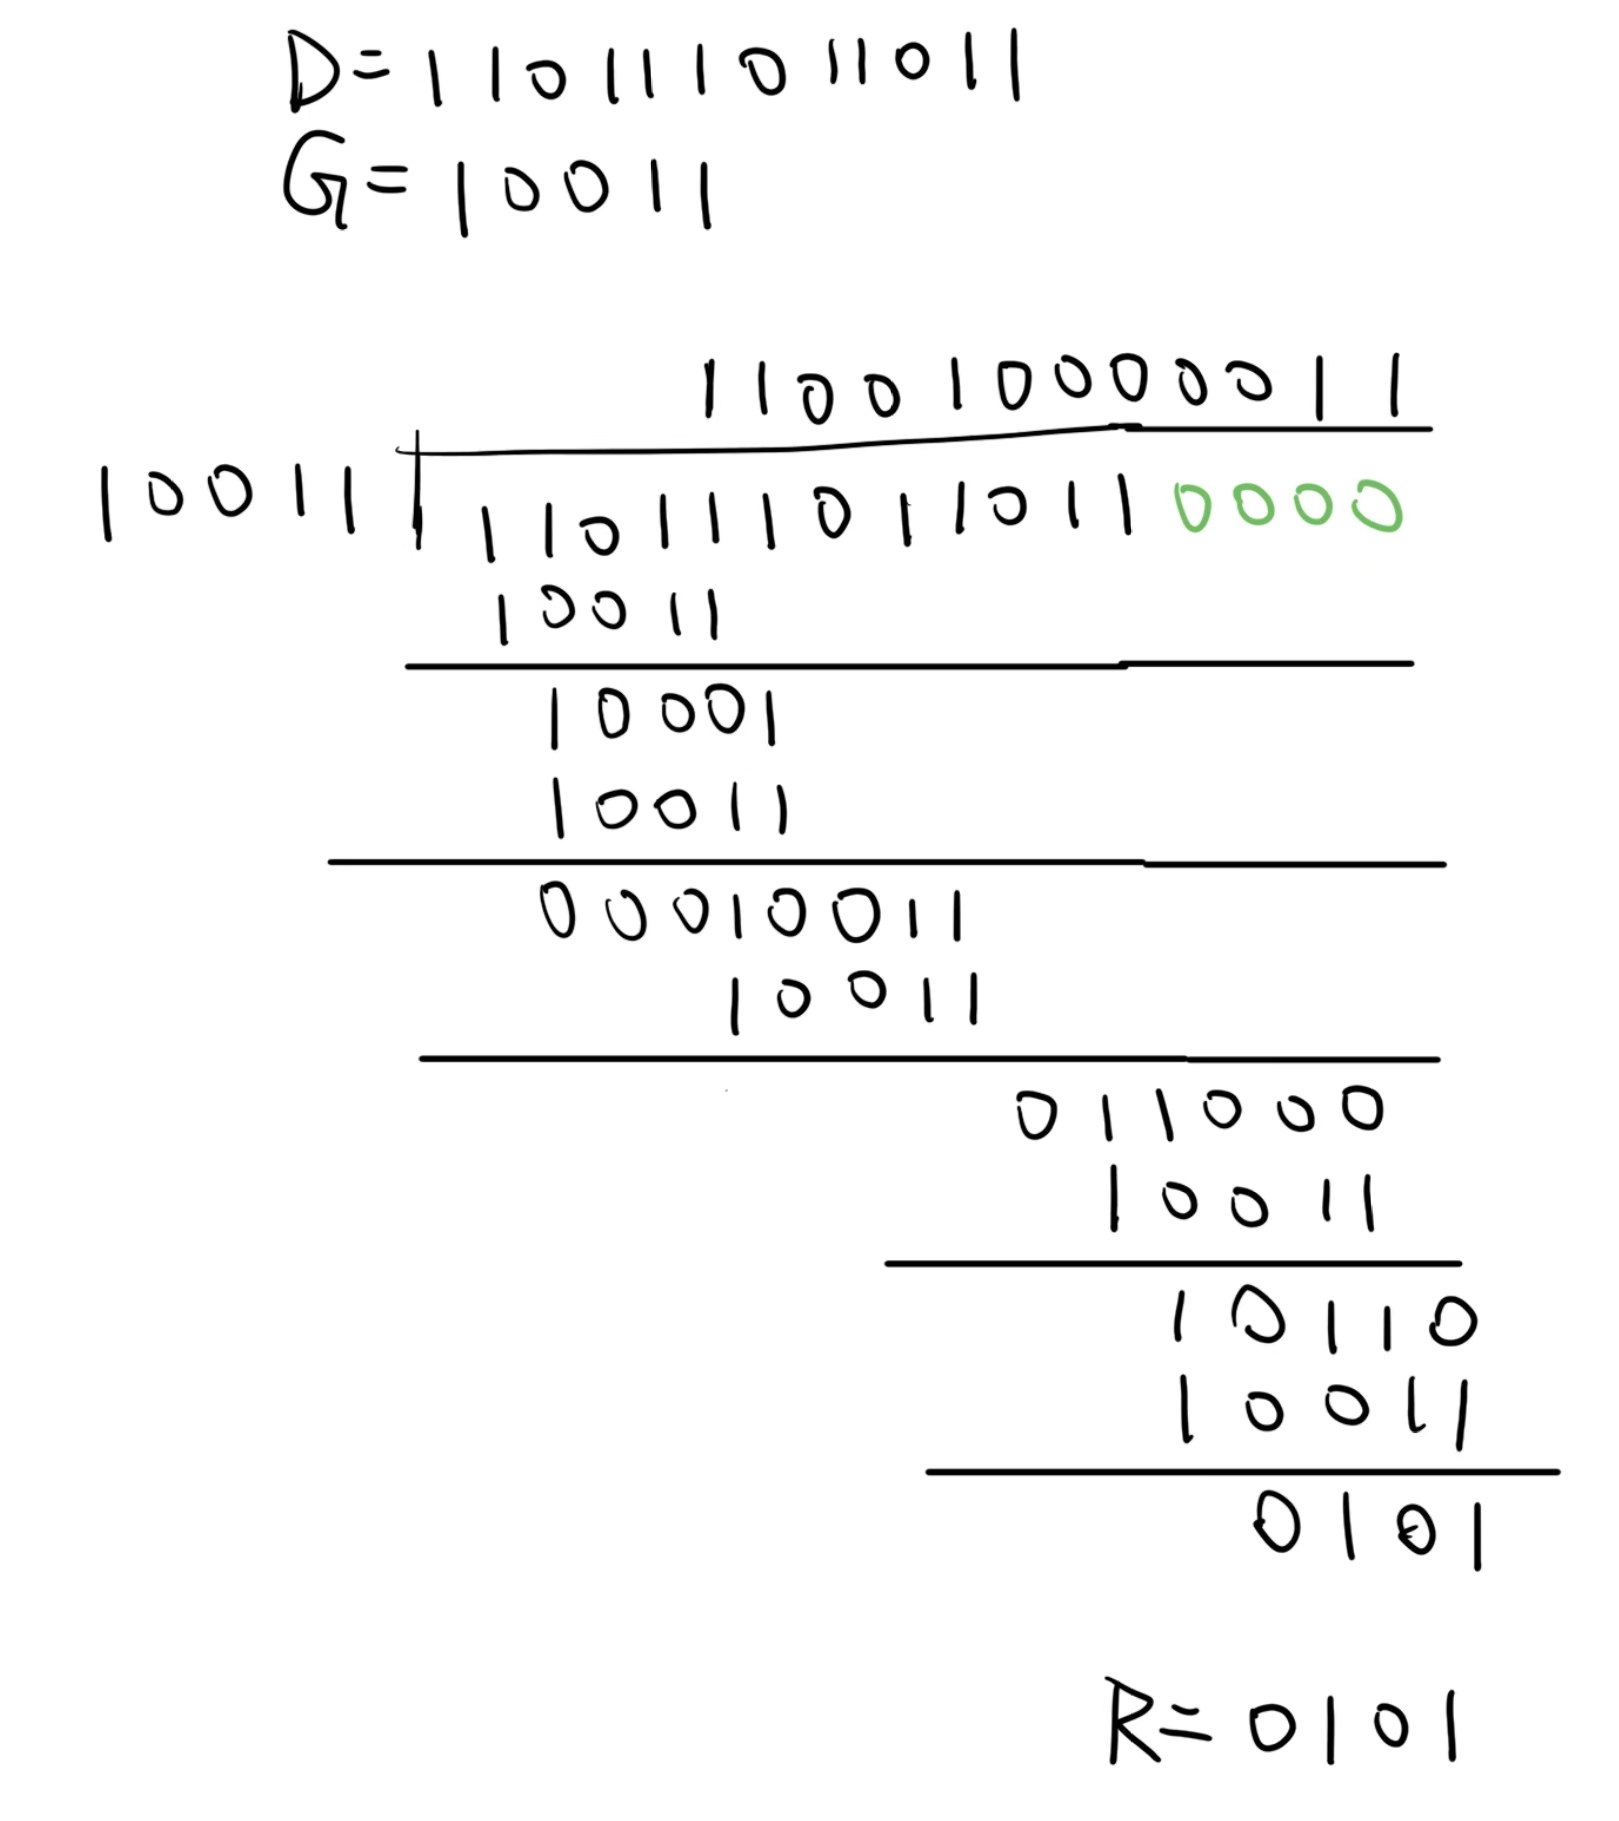 D=110111011011
G=10011
110010000011
10011 1101110110110000
10011
10001
10011
00010011
10011
011000
10011
10110
10011
0101
R=0101